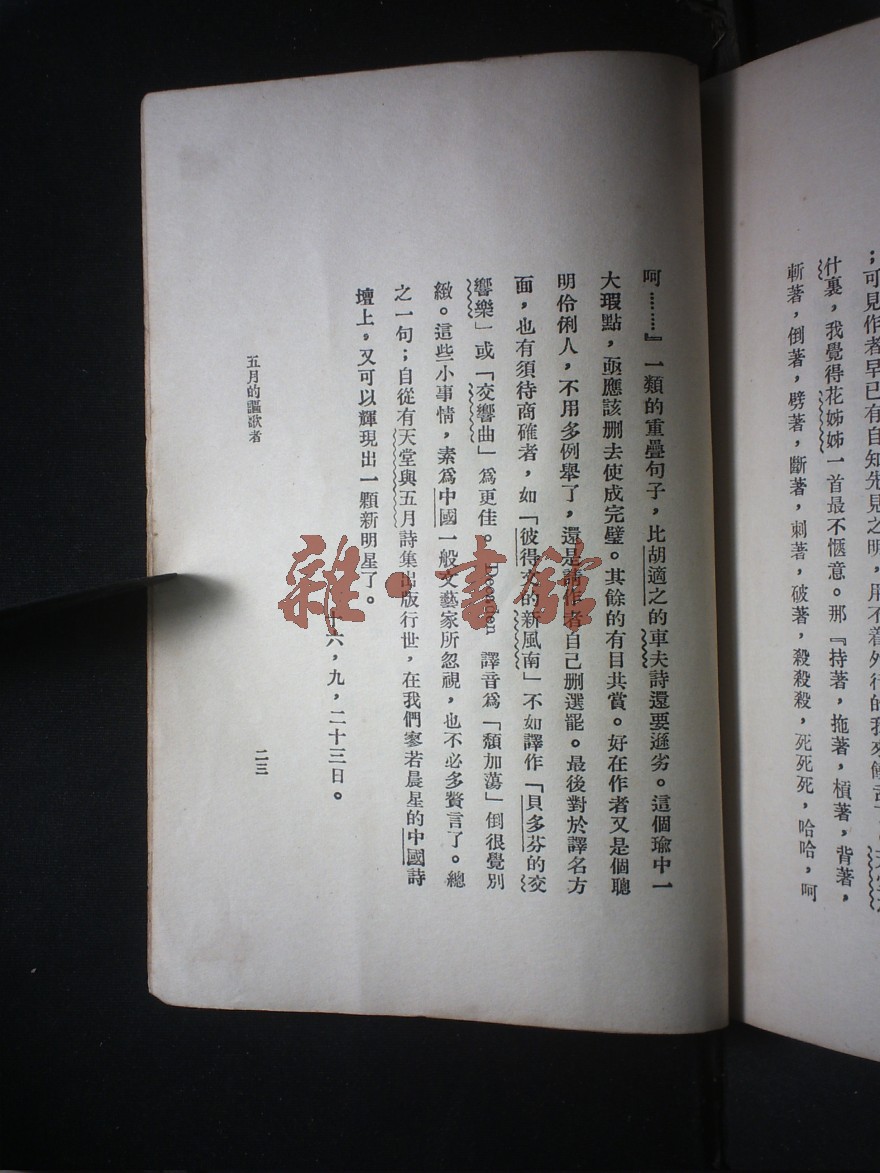 什裏，我覺得花姊姊一首最不愜意。那『持著，拖著，槓著，背著，
斬著，倒著，劈著，斷著，刺著，破著，殺殺殺，死死死，哈哈，呵
呵………』一類的重疊句子，比胡適之的車夫詩還要遜劣。這個瑜中一
大瑕點，亟應該刪去使成完璧。其餘的有目共賞。好在作者又是個聰
明伶俐人，不用多例舉了，還是請作者自己刪選罷。最後對於譯名方
面，也有須待商確者，如「彼得文的新風南」不如譯作「貝多芬的交
響樂」或「交響曲」爲更佳。譯音爲「頹加蕩」倒很覺別
緻。這些小事情，素爲中國一般文藝家所忽視，也不必多贅言了。總
之一句；自從有天堂與五月詩集出版行世，在我們寥若晨星的中國詩
壇上，又可以輝現出一顆新明星了。
十六，九，二十三日。
五月的謳歌者
二三
雜·書館